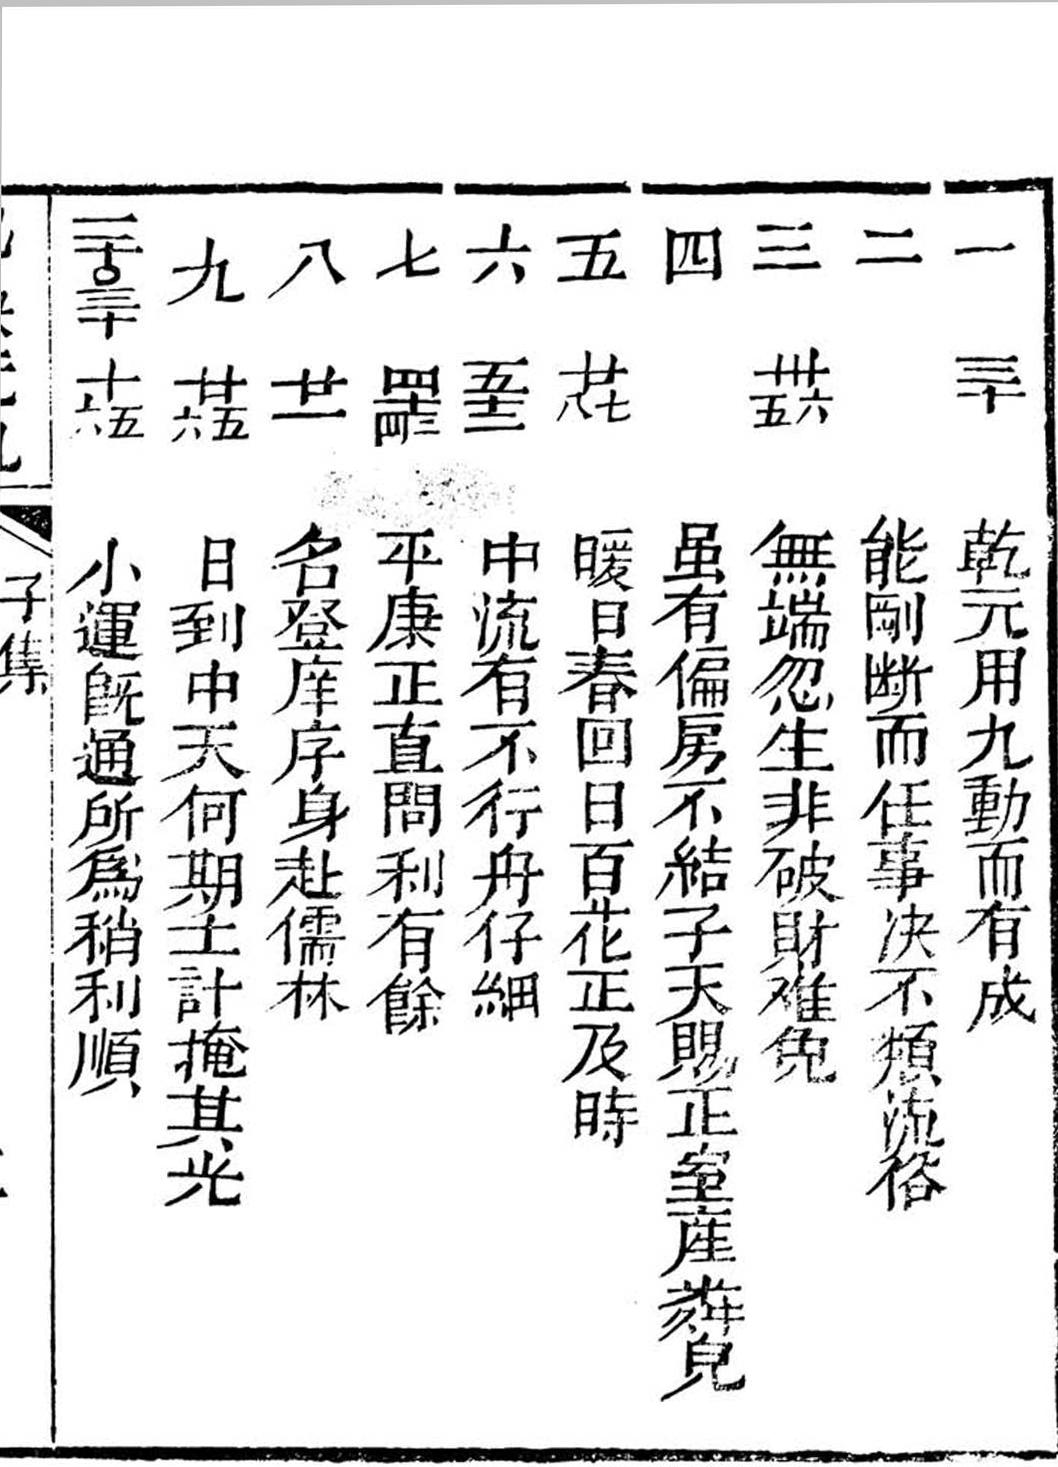 一 三十 乾元用九動而有成
二 能剛斷而任事决不類流俗
三 卅六五 無端忽生非破財难免
四 虽有偏房不結子天賜正室産兒
五 廿七八 暖日春回日百花正及時
六 中流有不行舟仔細
七 四十三四 平康正直問利有餘
八 廿一 名登庠序身赴儒林
九 廿五六 日到中天何期土計掩其光
十五六 小運既通所爲稍利順
子集